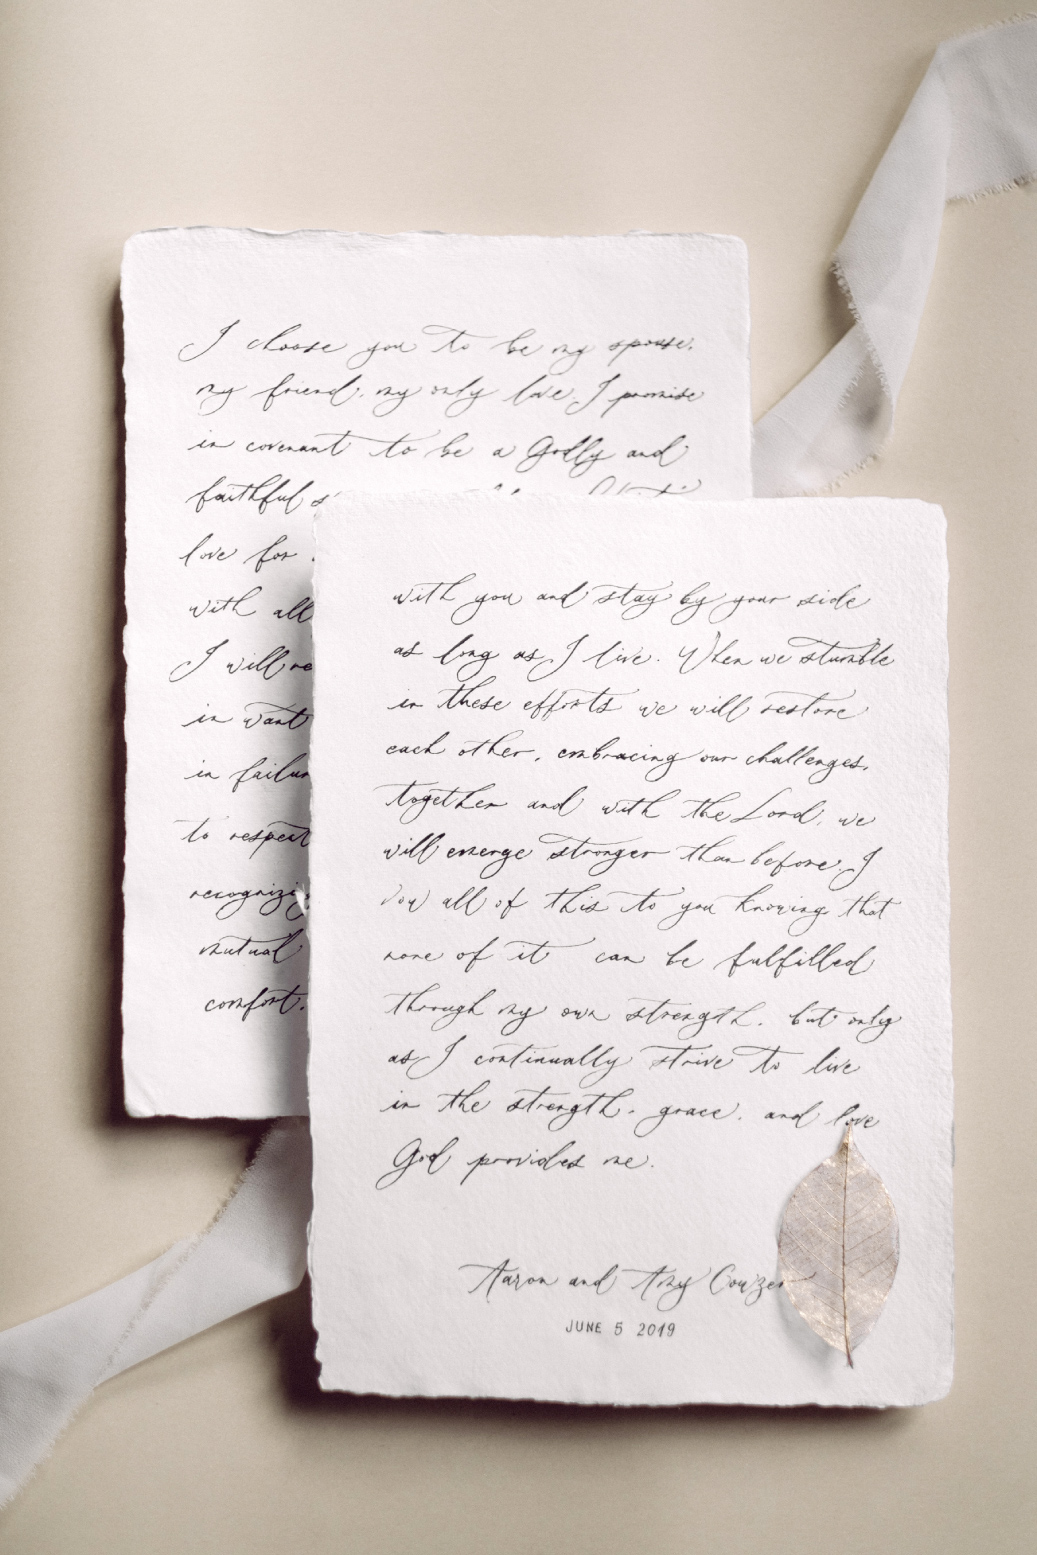 I choose you to be my spouse,
my friend, my only love. I promise
in covenant to be a Godly and
faithful
love for
with all
I will
in want
in
to respect
mutual
comfort,
with you and stay by your side
as long as I live. When we stumble
in these efforts we will restore
each other, embracing our challenges,
together and with the Lord, we
will emerge stronger than before. I
vow all of this to you knowing that
none of it can be fulfilled
through my own strength, but only
as I continually strive to live
in the strength, grace, and love
God provides me.
Aaron and Amy
JUNE 5 2019